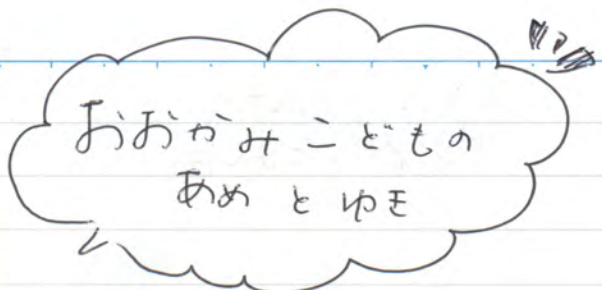 おおかみこどもの
あめとゆき